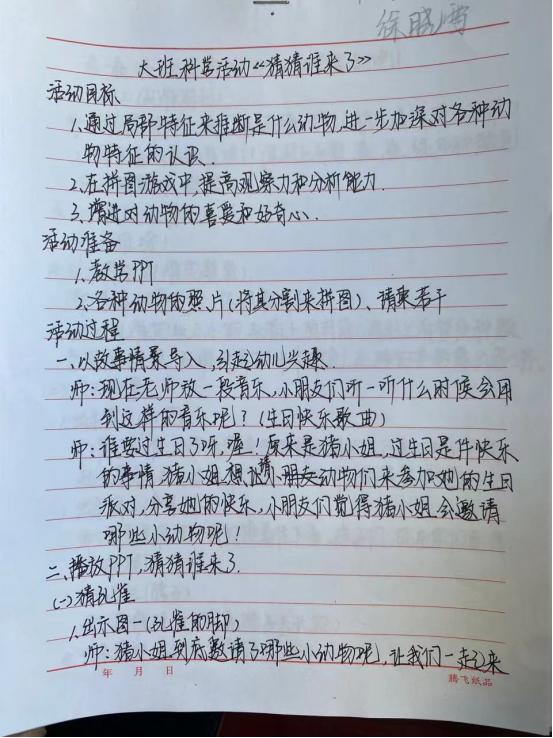 徐晓雪
大班科学活动《猜猜谁来了》
活动目标
1.通过局部特征来推断是什么动物,进一步加深对各种动
物特征的认识.
2.在拼图游戏中,提高观察力和分析能力.
3.增进对动物的喜爱和好奇心.
活动准备
1.教学PPT
2.各种动物的照片(将其分割来拼图)、请柬若干
活动过程
一、以故事情景导入,引起幼儿兴趣.
师:现在老师放一段音乐,小朋友们听一听什么时候会用
到这样的音乐呢?(生日快乐歌曲)
师:谁要过生日了呀,喔!原来是猪小姐,过生日是件快乐
的事情,猪小姐想请小动物们来参加她的生日
派对,分享她的快乐,小朋友们觉得猪小姐会邀请
哪些小动物呢!
二、播放PPT,猜猜谁来了.
(一)猜孔雀
1.出示图一(孔雀的脚)
师:猪小姐到底邀请了哪些小动物呢,让我们一起来
年 月 日
腾飞纸品